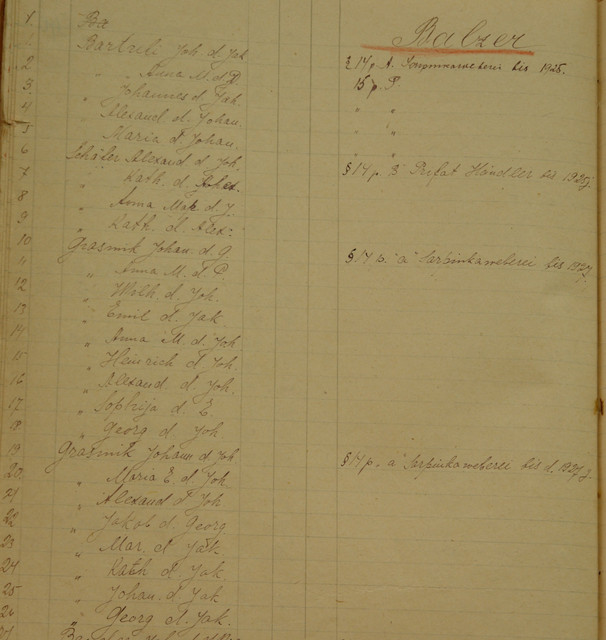 Balzer
1. Ba
Bartuli Joh d Jak § 14 p. A. bis 1925.
2 " " Anna M. d P. 15 p. S.
3 " Johannes d Jak. " "
4 " Alexand d. Johan. " "
5 " Maria d Johan. " "
6 Schäfer Alexand d Joh.
7 " Kath. d. § 14 p. Prifat Händler bis 1925 j.
8 " Anna Mar d. J.
9 " Kath. d Alex.
10 Grasmik Johan. d. G. § 14 p. "a" Sarpinkaweberei bis 1927 j.
11 " Anna M. d P.
12 " Wilh d. Joh.
13 " Emil d. Jak
14 " Anna M. d. Joh
15 " Heinrich d Joh.
16 " Alexand d. Joh.
17 " Sophija d E.
18 " Georg d. Joh
19 Grasmik Johann d Joh § 14 p. "a" Sarpinkaweberei bis d. 1927 j.
20 " Maria E d Joh
21 " Alexand d Joh
22 " Jakob d Georg
23 " Mar. d Jak
24 " Kath d Jak
25 " Johan. d Jak.
26 " Georg d. Jak.